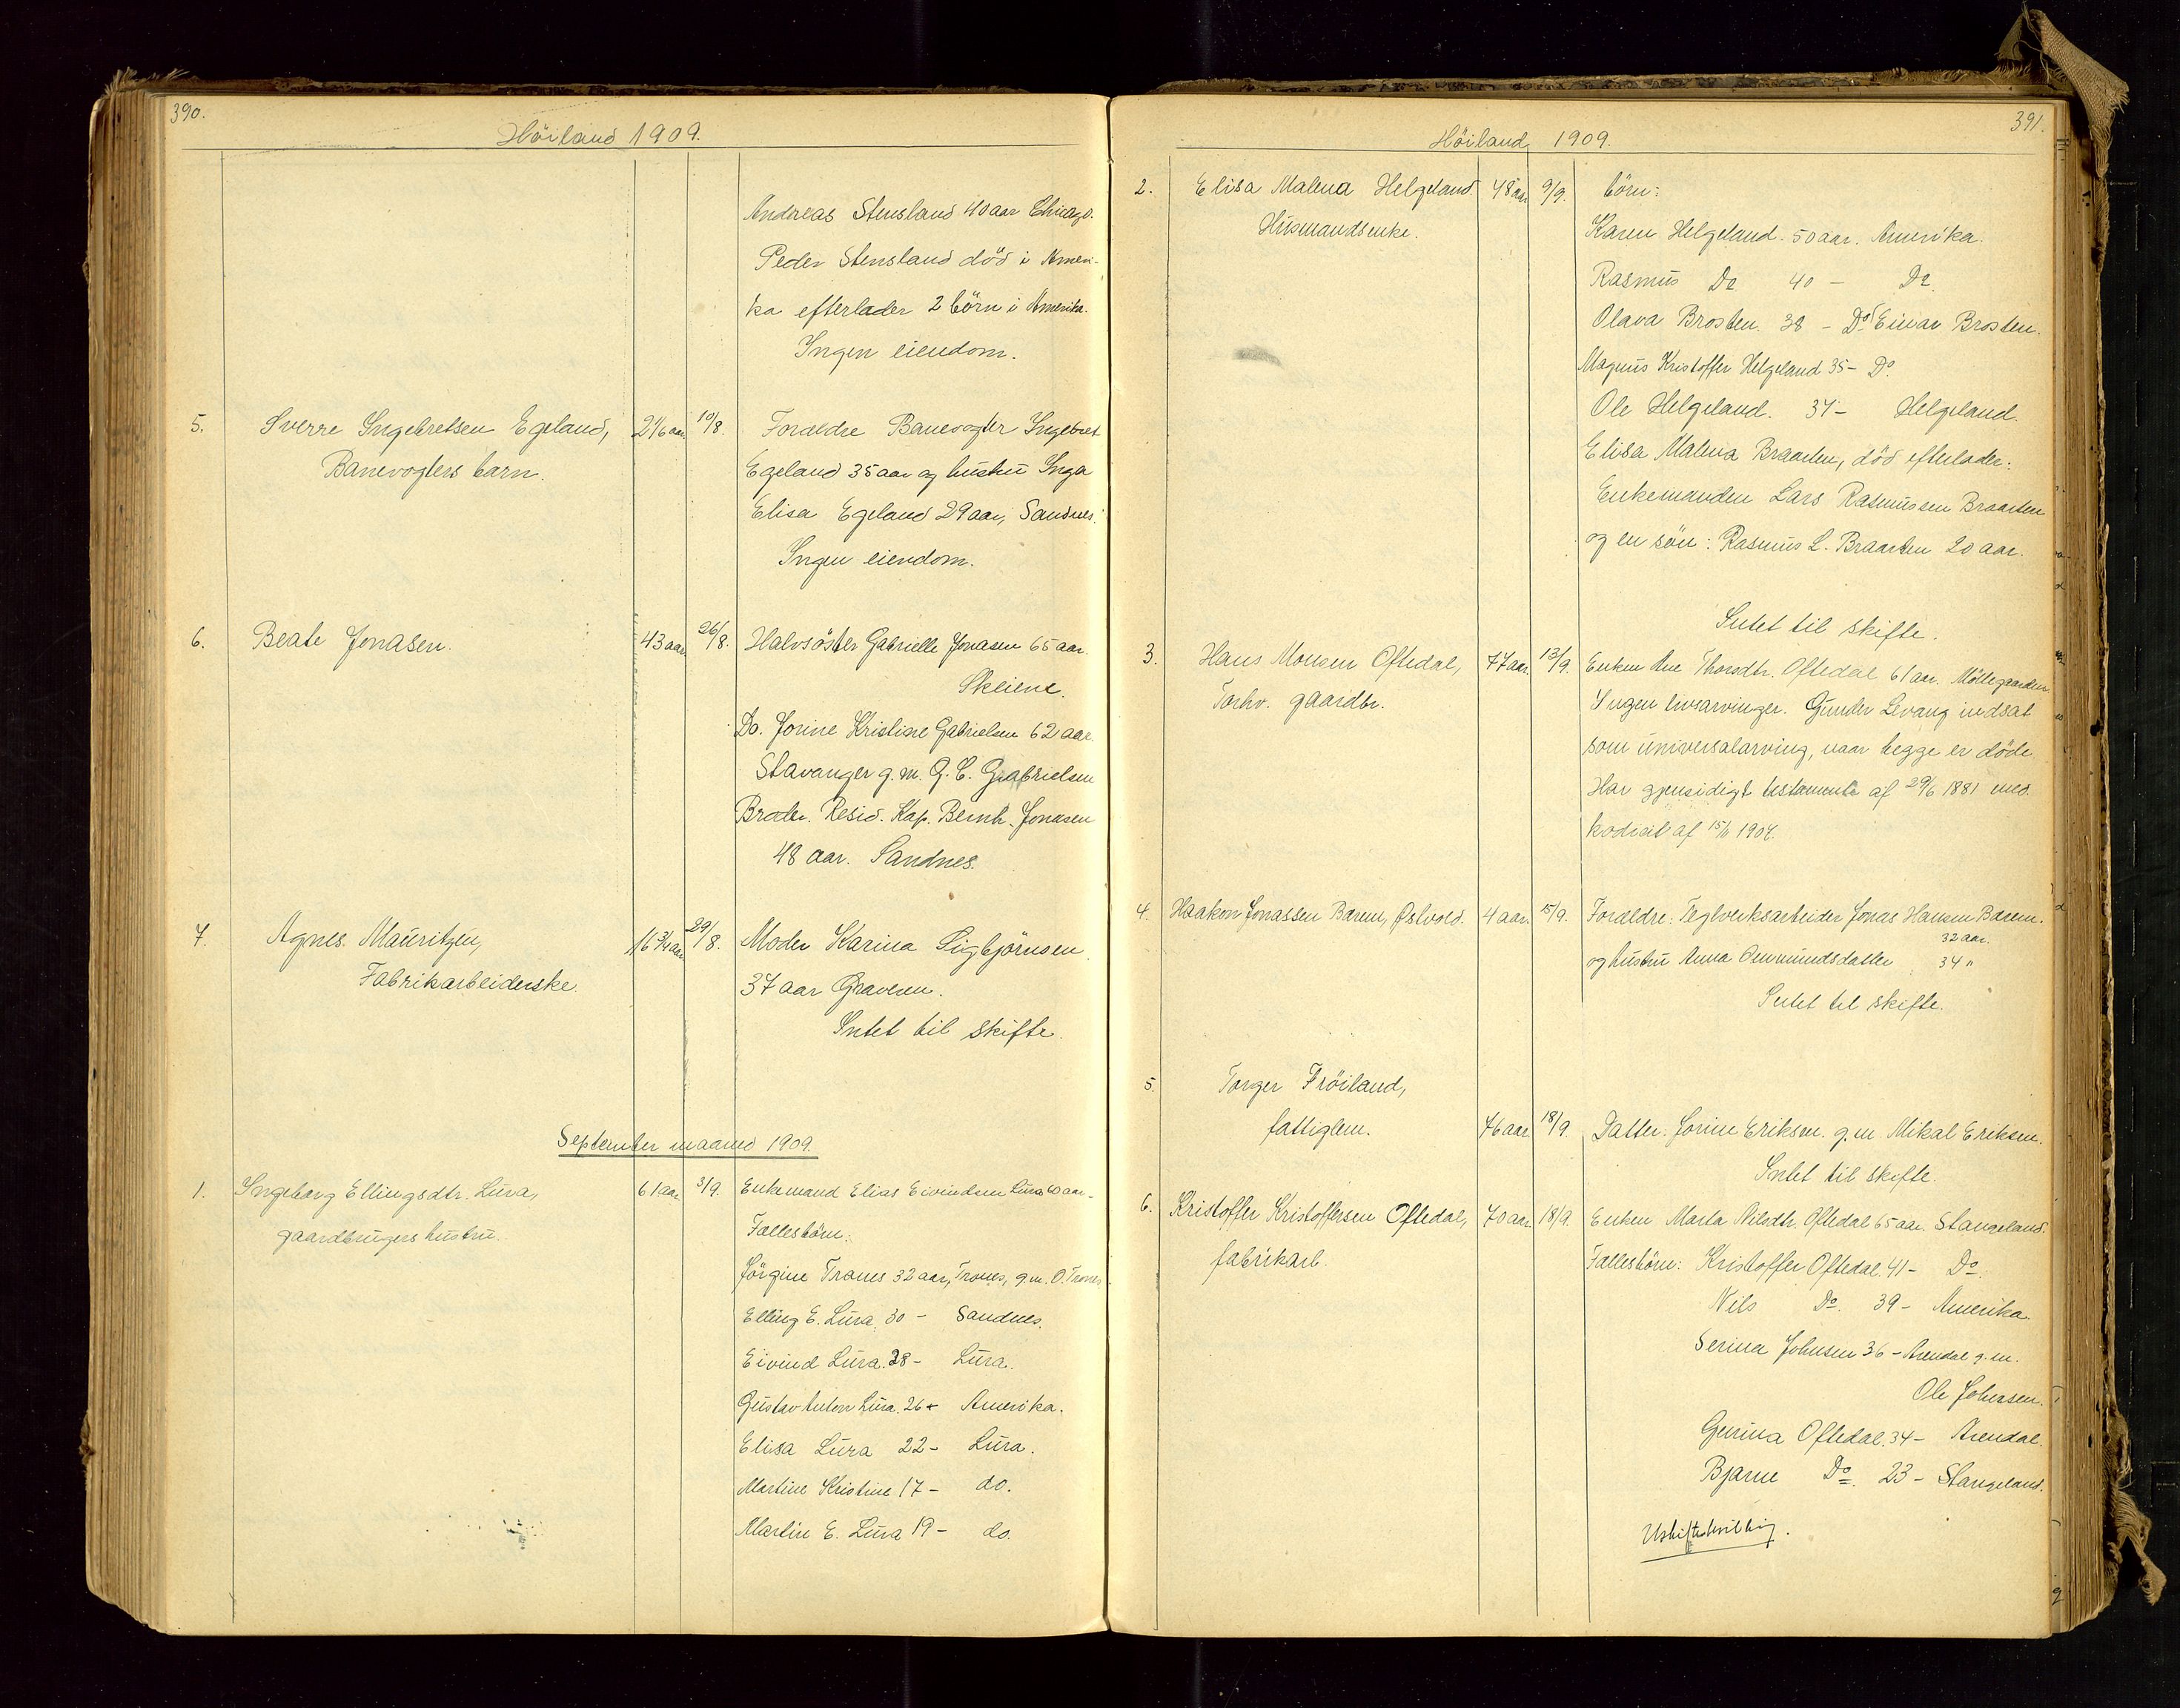 390.
Höiland 1909.
Andreas Stensland 40 aar Chicago.
Peder Stensland död i Ameri-
ka efterlader 2 börn i Amerika.
Ingen eiendom.
5. Sverre Ingebretsen Egeland, 2 1/6 aar 10/8. Foraeldre Banevogter Ingebret
Banevogters barn. Egeland 35 aar og hustru Inga
Elisa Egeland 29 aar, Sandnes.
Ingen eiendom.
6. Beate Jonasen. 43 aar 26/8. Halvsöster Gabrielle Jonasen 65 aar
Skeiene.
Do. Jorine Kristine Gabrielsen 62 aar.
Stavanger g. m. G. C. Gabrielsen
Broder. Resid. Kap. Bernh. Jonasen
48 aar. Sandnes.
7. Agnes Mauritzen, 16 3/4 aar 29/8. Moder Karina Sigbjörnsen
Fabrikarbeiderske. 37 aar Graveren.
Intet til skifte.
September maaned 1909.
1. Ingeborg Ellingsdtr. Lura, 61 aar 3/9. Enkemand Elias Eivindsen Lura 60 aar.
gaardbrugers hustru. Fællesbörn:
Jörgine Trones 32 aar, Trones, g.m. O. Trones
Elling E. Lura 30 - Sandnes.
Eivind Lura. 28 - Lura.
Gustav Anton Lura. 26 - Amerika.
Elisa Lura 22 - Lura.
Martine Kristine 17 - do.
Martin E. Lura 19 - do.
391.
Höiland 1909.
2. Elisa Malena Helgeland. 78 aar 9/9. börn:
Husmandsenke. Karen Helgeland. 50 aar. Amerika.
Rasmus Do 40 - Do.
Olava Brosten. 38 - Do / Einar Brosten.
Magnus Kristoffer Helgeland 35 - Do.
Ole Helgeland. 34 - Helgeland.
Elisa Malena Braaten, död efterlader:
Enkemanden Lars Rasmussen Braaten
og en sön: Rasmus L. Braaten 20 aar.
Intet til skifte.
3. Hans Monsen Oftedal, 77 aar. 13/9. Enken Ane Thorsdtr. Oftedal 61 aar. Möllegaarden
Forhv. gaardbr. Ingen livsarvinger. Gunder Levang indsat
som universalarving, naar begge er döde
Har gjensidigt testamente af 29/6 1881 med
kodicil af 15/11 1904.
4. Haakon Jonassen Barem, Östvold. 4 aar. 15/9. Foraeldre: Teglverksarbeider Jonas Hansen Barem.
32 aar.
og hustru Anna Osmundsdatter 34 "
Intet til skifte.
5. Torger Fröiland,
fattiglem. 76 aar. 18/9. Datter: Jorine Eriksen. g.m Mikal Eriksen.
Intet til skifte.
6. Kristoffer Kristoffersen Oftedal, 70 aar. 18/9. Enken Marta Nilsdtr. Oftedal 65 aar. Stangeland.
fabrikarb. Fællesbörn: Kristoffer Oftedal. 41 - Do.
Nils Do. 39 - Amerika.
Serina Johnsen 36 - Arendal g.m.
Ole Johnsen.
Gurina Oftedal. 34 - Arendal.
Bjarne Do. 23 - Stangeland.
Uskiftebevilling.